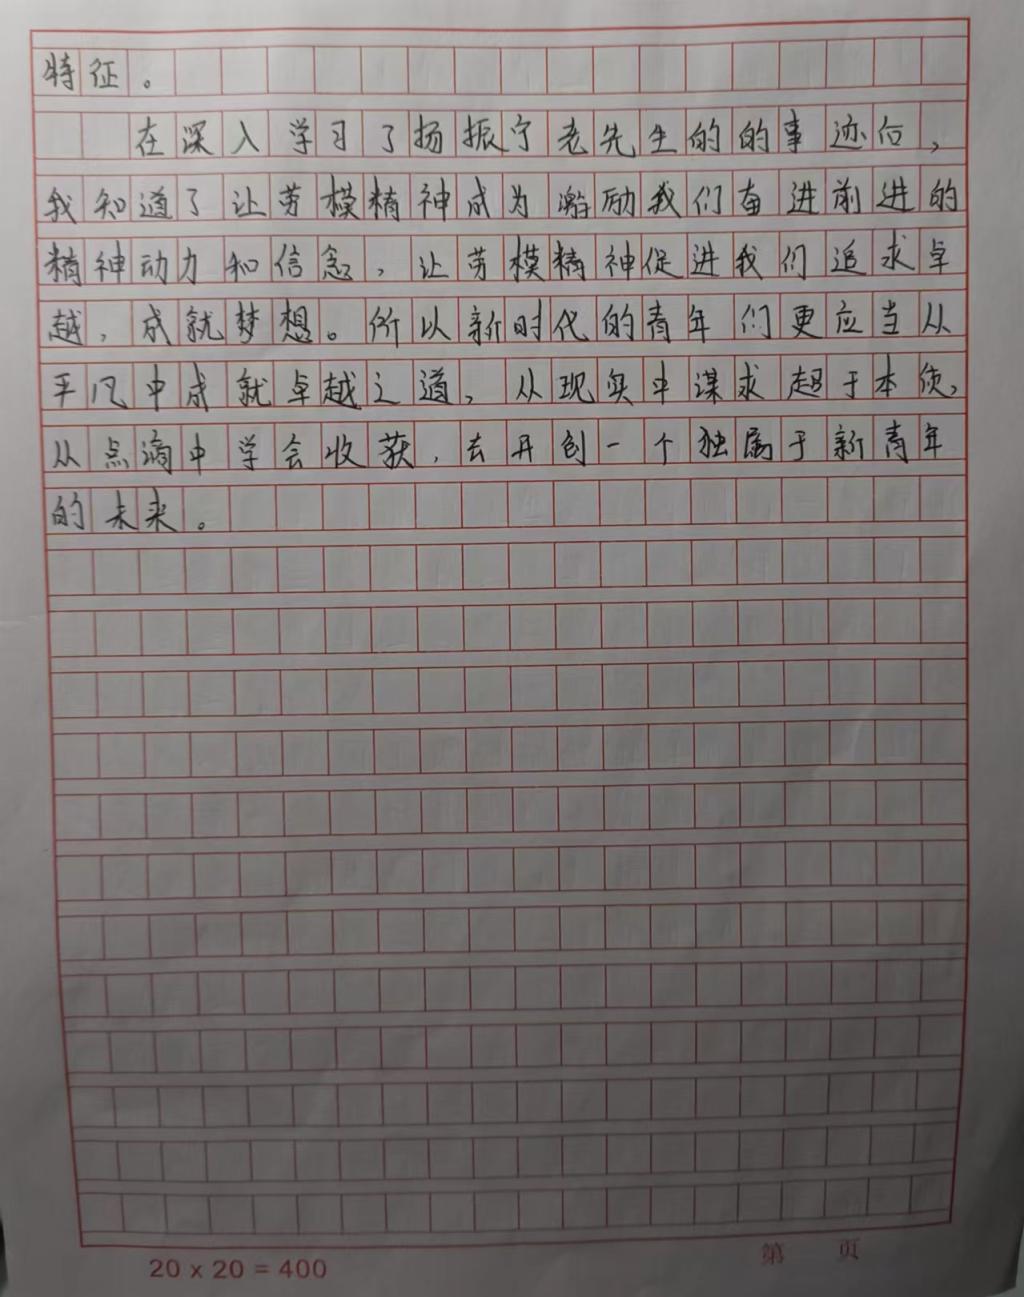 特征。
在深入学习了扬振宁老先生的的事迹后，
我知道了让劳模精神成为激励我们奋进前进的
精神动力和信念，让劳模精神促进我们追求卓
越，成就梦想。所以新时代的青年们更应当从
平凡中成就卓越之道，从现实中谋求超于本领，
从点滴中学会收获，去开创一个独属于新青年
的未来。
20 x 20 = 400
第 页